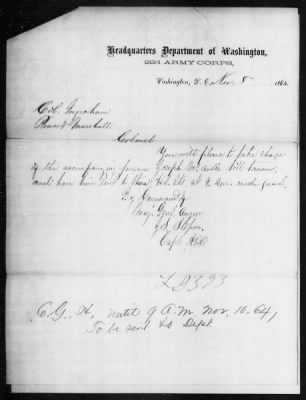 Headquarters Department of Washington,
22d ARMY CORPS,
Washington, D. C. Nov 8 1864.
Col. Ingraham
Provost Marshall
Colonel
You will please to take charge
of the accompanying prisoner Joseph McArdle till
and have him sent to these Hd. Qts. at 9 A.M. under guard.
By Command of
Maj. Genl. Augur
Capt.
C. G. H. until 9 A.M. Nov. 10. 64,
To be sent to Dept.